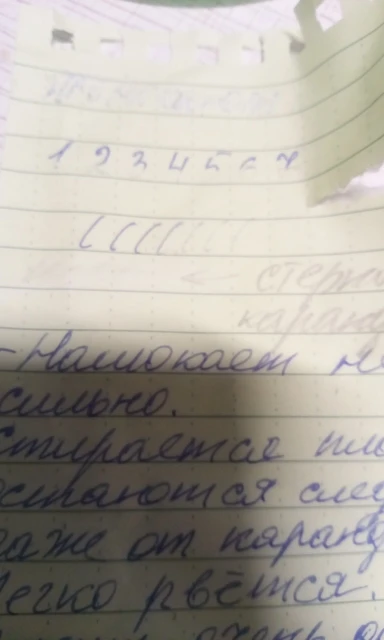 1 2 3 4 5 6 7
((((
←
каранд
-Намокает не
сильно.
стирается пло
остаются след
даже от каранд
Легко рвётся.